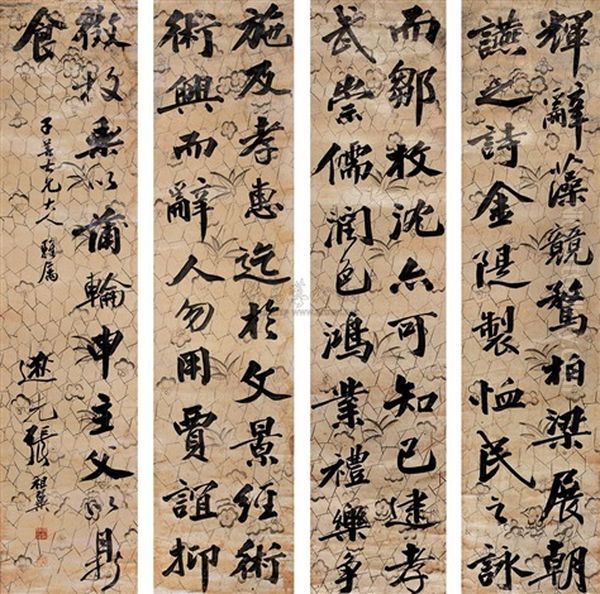 輝辭藻競騖柏梁展朝
讌之詩金隄製恤民之詠
而鄒枚沈亦可知已逮孝
武崇儒潤色鴻業禮樂爭
施及孝惠迄於文景經術
術興而辭人勿用賈誼抑
徵枚乘以蒲輪申主父以鼎
食
子善七兄大人 雅屬
逖先張祖翼